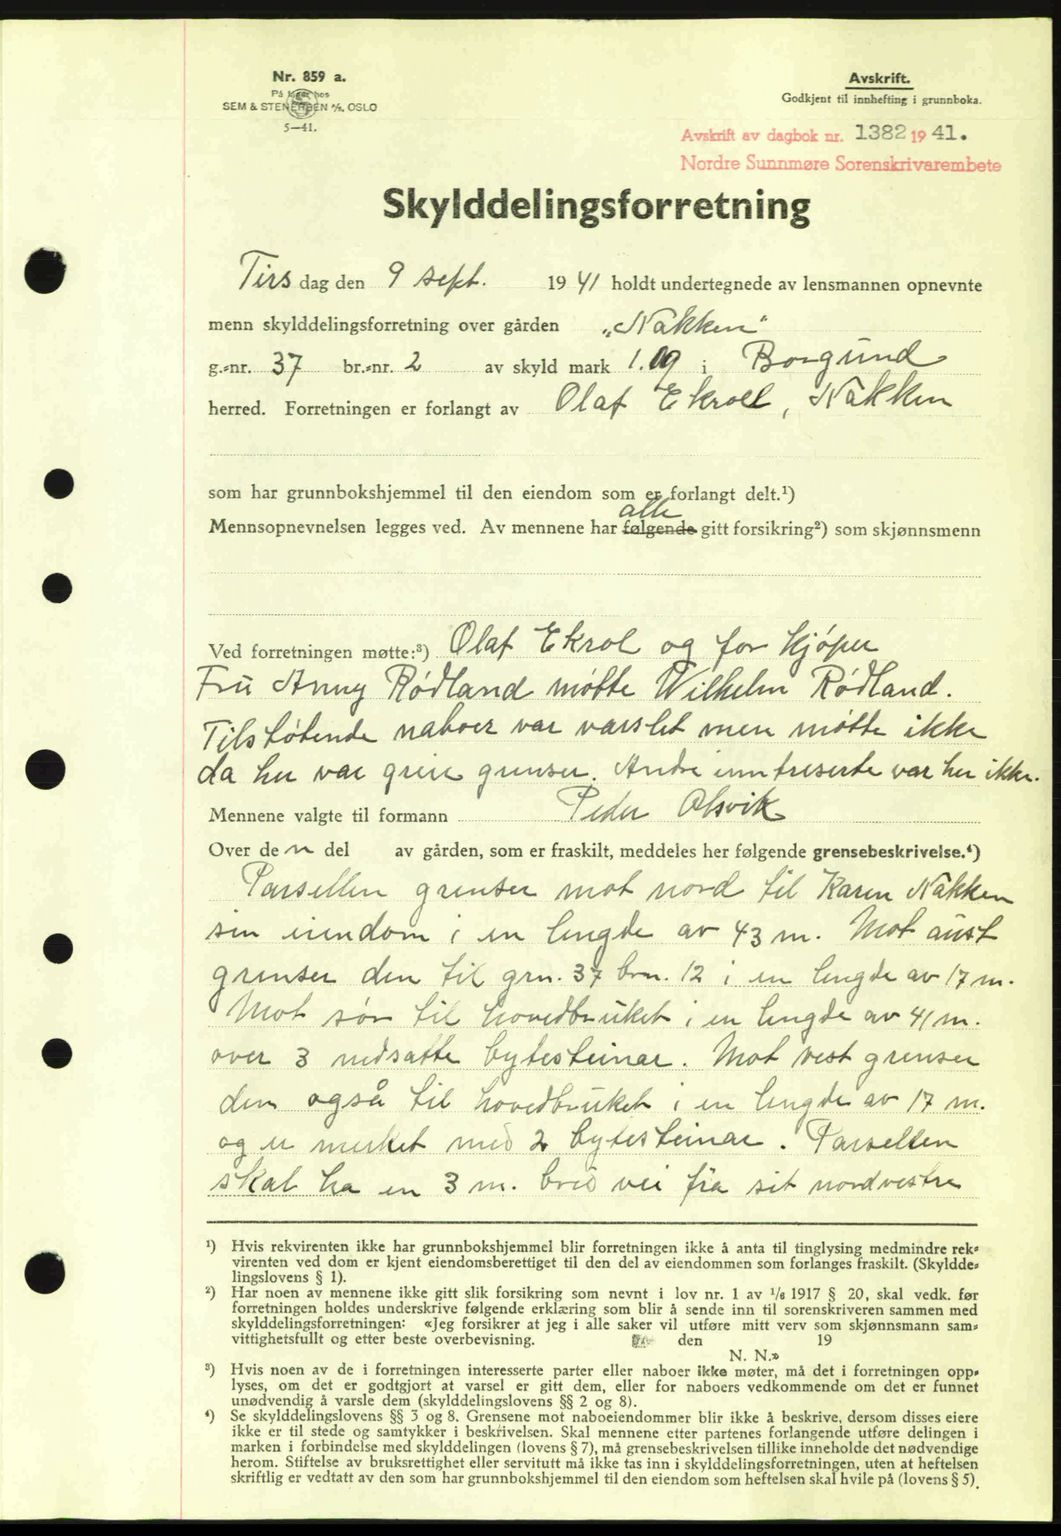 Nr. 859 a.
På lager hos
SEM & STENERSEN A/S, OSLO
5—41.
Avskrift.
Godkjent til innhefting i grunnboka.
Avskrift av dagbok nr. 1382 1941.
Nordre Sunnmøre Sorenskrivarembete
Skylddelingsforretning
Tirsdag den 9 sept. 1941 holdt undertegnede av lensmannen opnevnte
menn skylddelingsforretning over gården „Nakken“
g.-nr. 37 br.-nr. 2 av skyld mark 1.09 i Borgund
herred. Forretningen er forlangt av Olaf Ekroll, Nakken
som har grunnbokshjemmel til den eiendom som er forlangt delt.¹)
alle
Mennsopnevnelsen legges ved. Av mennene har følgende gitt forsikring²) som skjønnsmenn
Ved forretningen møtte:³) Olaf Ekrol og for kjøper
Fru Anny Rødland møtte Wilhelm Rødland.
Tilstøtende naboer var varslet men møtte ikke
da her var greie grenser. Andre inntreserte var her ikke.
Mennene valgte til formann Peder Alsvik
Over de n del av gården, som er fraskilt, meddeles her følgende grensebeskrivelse.⁴)
Parsellen grenser mot nord til Karen Nakken
sin eiendom i en lengde av 43 m. Mot aust
grenser den til grn. 37 brn. 12 i en lengde av 17 m.
Mot sør til hovedbruket i en lengde av 41 m.
over 3 nedsatte bytesteinar. Mot vest grenser
den også til hovedbruket i en lengde av 17 m.
og er merket med 2 bytesteinar. Parsellen
skal ha en 3 m. bred vei fra sit nordvestre
¹) Hvis rekvirenten ikke har grunnbokshjemmel blir forretningen ikke å anta til tinglysing medmindre rek-
virenten ved dom er kjent eiendomsberettiget til den del av eiendommen som forlanges fraskilt. (Skyldde-
lingslovens § 1).
²) Har noen av mennene ikke gitt slik forsikring som nevnt i lov nr. 1 av 1/6 1917 § 20, skal vedk. før
forretningen holdes underskrive følgende erklæring som blir å sende inn til sorenskriveren sammen med
skylddelingsforretningen: «Jeg forsikrer at jeg i alle saker vil utføre mitt verv som skjønnsmann sam-
vittighetsfullt og etter beste overbevisning. den 19
N. N.»
³) Hvis noen av de i forretningen interesserte parter eller naboer ikke møter, må det i forretningen opp-
lyses, om det er godtgjort at varsel er gitt dem, eller for naboers vedkommende om det er funnet
unødvendig å varsle dem (skylddelingslovens §§ 2 og 8).
⁴) Se skylddelingslovens §§ 3 og 8. Grensene mot naboeiendommer blir ikke å beskrive, dersom disses eiere
ikke er til stede og samtykker i beskrivelsen. Skal mennene etter partenes forlangende utføre delingen i
marken i forbindelse med skylddelingen (lovens § 7), må grensebeskrivelsen tillike inneholde det nødvendige
herom. Stiftelse av bruksrettighet eller servitutt må ikke tas inn i skylddelingsforretningen, uten at heftelsen
skriftlig er vedtatt av den som har grunnbokshjemmel til den eiendom som heftelsen skal hvile på (lovens § 5).